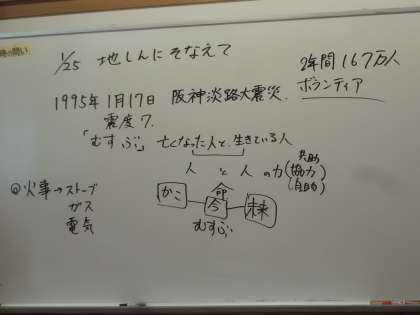 時の問い
1/25 地しんにそなえて
2年間167万人
ボランティア
1995年1月17日 阪神淡路大震災.
震度7.
「むすぶ」 亡くなった人と、生きている人
人 と 人 の力(協力)
共助
(自助)
命
かこ 今 未来
むすぶ
火事→ストーブ
ガス
電気